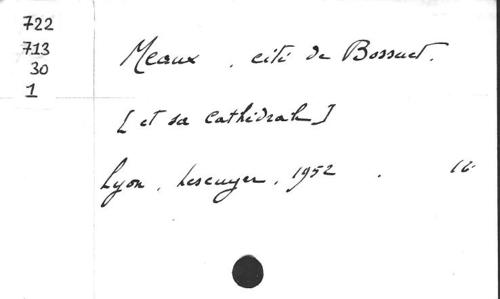 722
713
30
1
Meaux, cité de Bossuet.
[et sa cathédrale]
Lyon, Lescuyer, 1952. 16